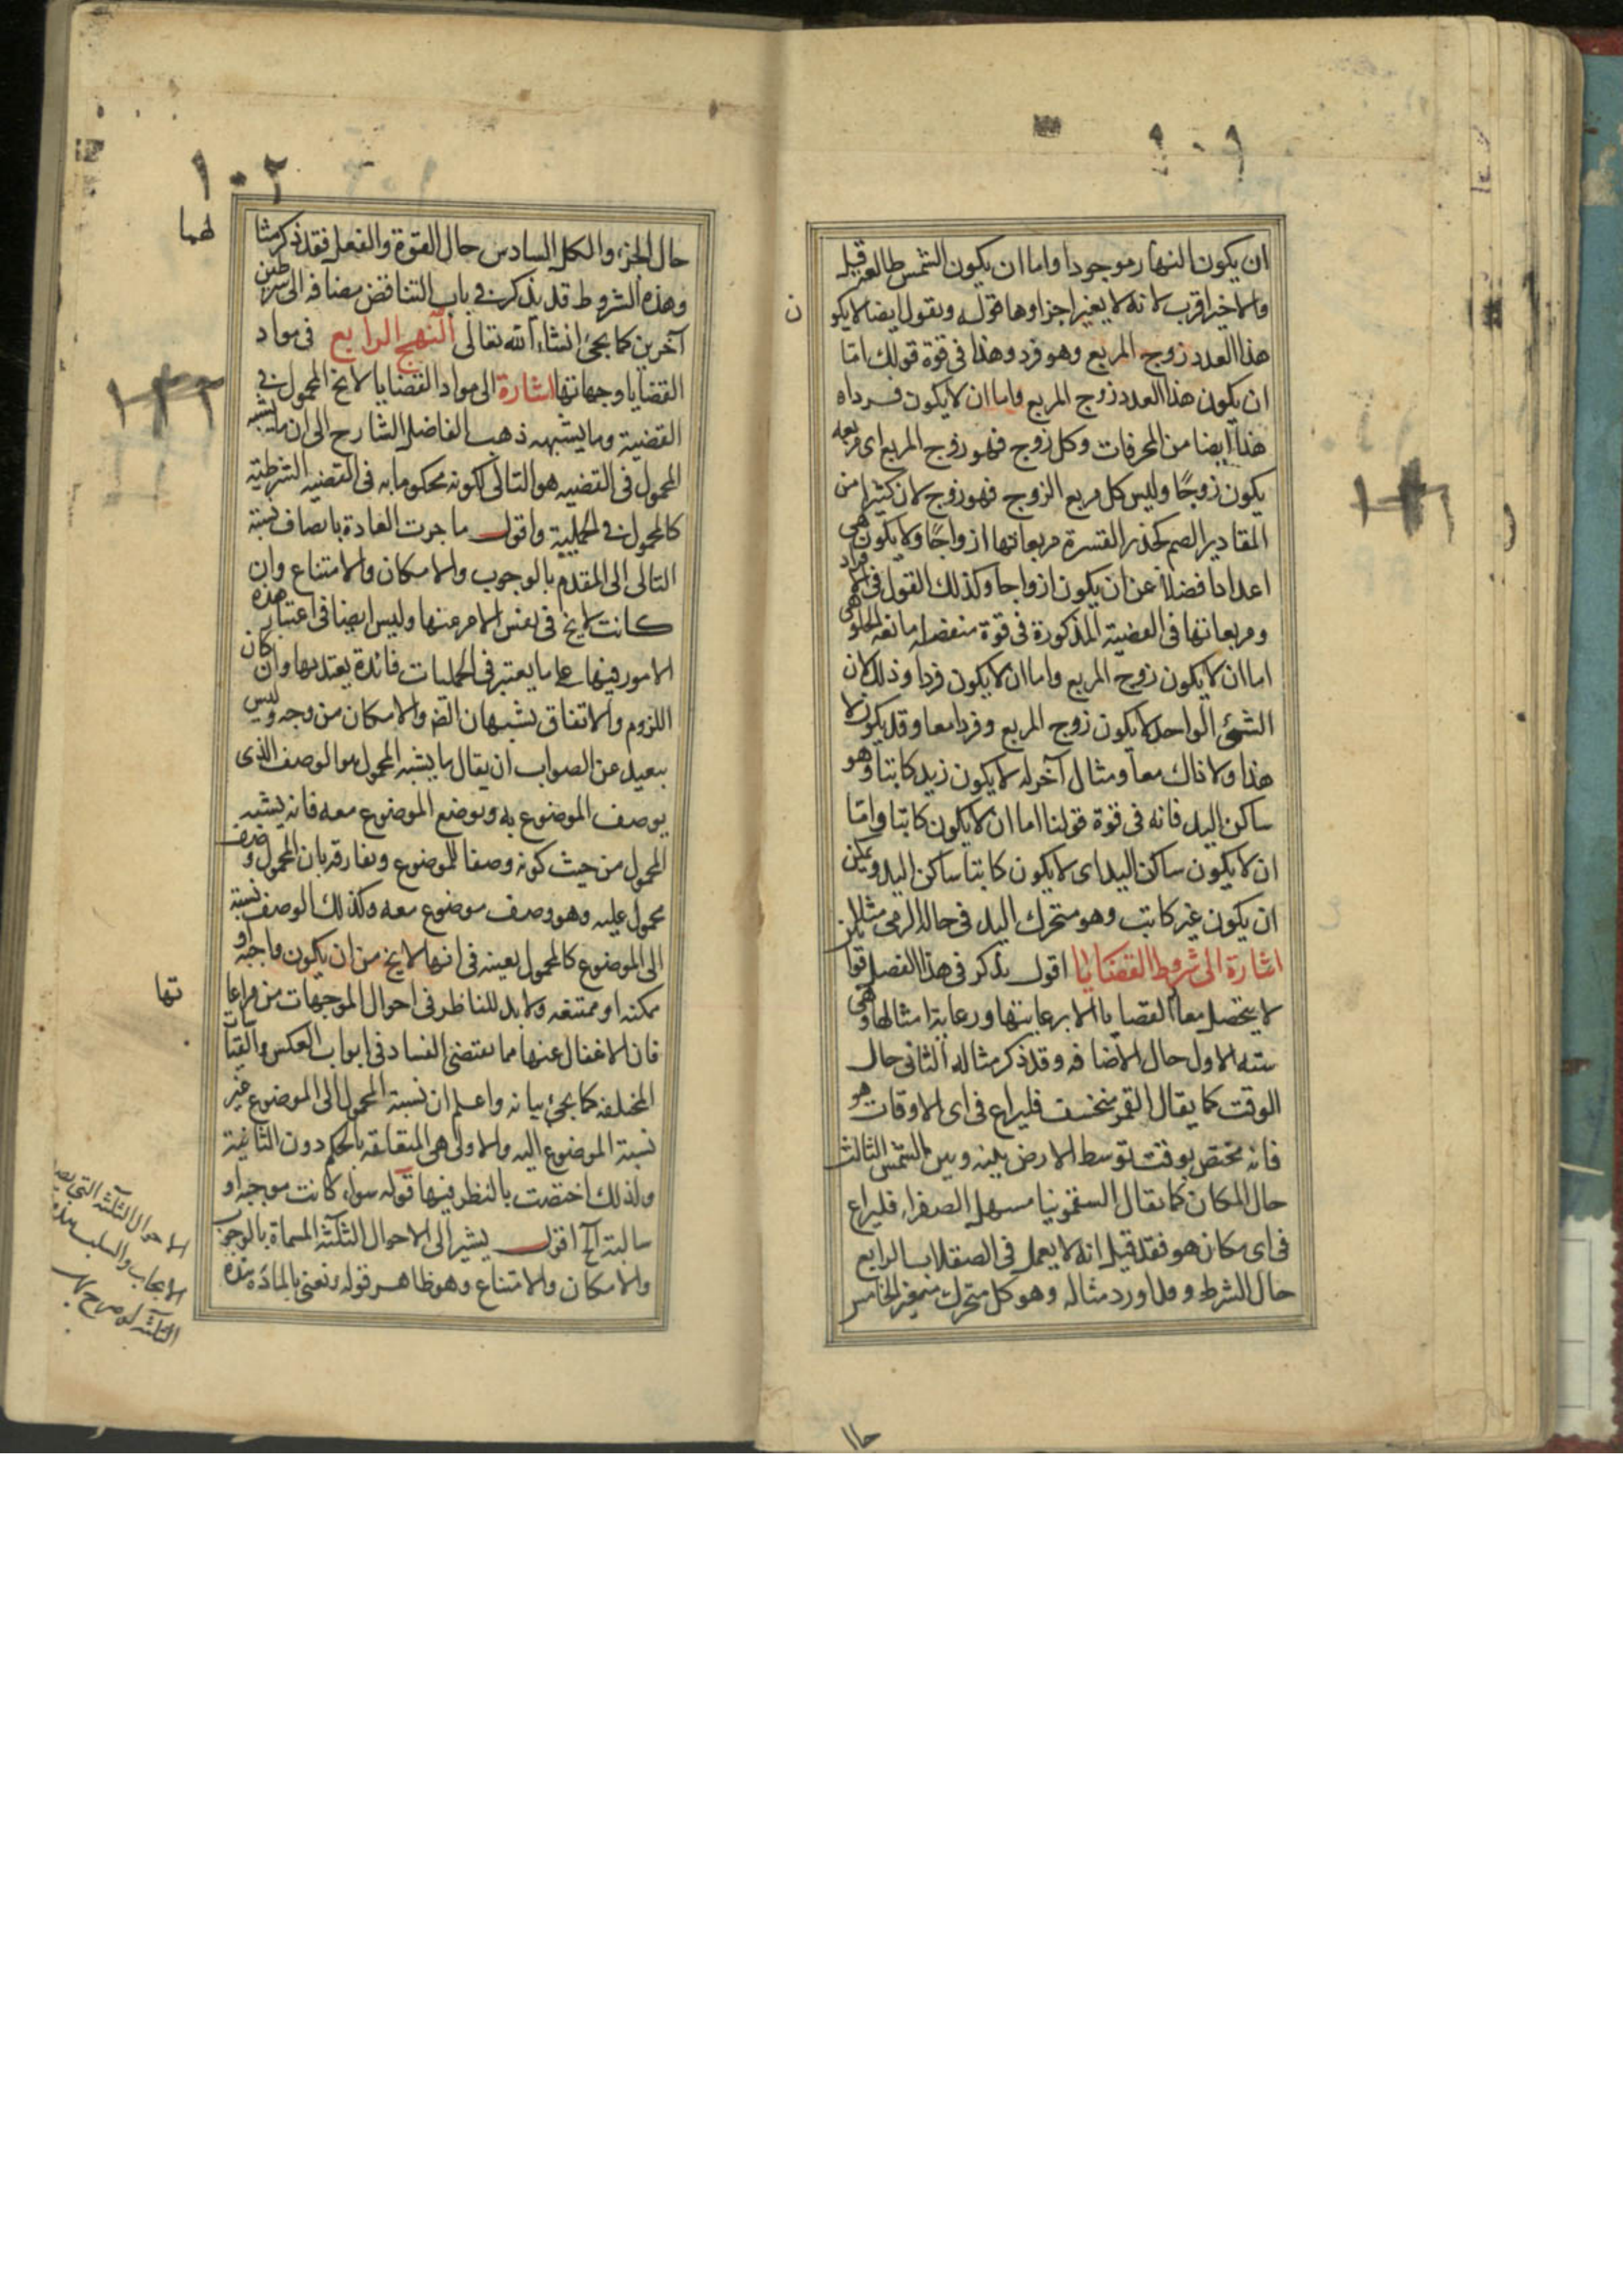 ١٠١
ان يكون النهار موجودا واما ان يكون الشمس طالعة قيل
والاخير اقرب لانه لا يغير اجزاوها قوله ويقول ايضا لا يكو
ن
هذا العدد زوج المربع وهو فرد وهذا فى قوة قولك امّا
ان يكون هذا العدد زوج المربع واما ان لا يكون فردا ه
هذا ايضا من المحرفات وكل زوج فهو زوج المربع اى مربعه
يكون زوجًا وليس كل مربع الزوج فهو زوج لان كثيرا من
المقادير الصم كجذر العشرة مربعاتها ازواجًا ولا يكون هى
اعدادا فضلاً عن ان يكون ازواجا وكذلك القول فى الافراد
ومربعاتها فى القضية المذكورة فى قوة منفصلة مانعة الخلو هى
اما ان لا يكون زوج المربع واما ان لا يكون فردا وذلك لان
الشئ الواحد لا يكون زوج المربع وفردا معا وقد يكون لا
هذا ولا ذاك معا ومثال آخر له لا يكون زيد كاتبا وهو
ساكن اليد فانه فى قوة قولنا اما ان لا يكون كاتبا وامّا
ان لا يكون ساكن اليد اى لا يكون كاتبا ساكن اليد ويمكن
ان يكون غير كاتب وهو متحرك اليد فى حالة الرمى مثلا
اشارة الى شروط القضايا اقول يذكر فى هذا الفصل
لا يتحصل معا القضايا الا برعايتها ورعاية امثالها وهى
ستة الاول حال الاضافه وقد ذكر مثاله الثانى حال
الوقت كما يقال القمر منخسف فليراع فى اى الاوقات هو
فانه مختص بوقت توسط الارض بينه وبين الشمس الثالث
حال المكان كما يقال السقمونيا مسهل الصفراء فليراع
فى اى مكان هو فقد قيل انه لا يعمل فى الصقلاب الرابع
حال الشرط و اورد مثاله وهو كل متحرك متغير الخامس
حال
١٠٢
حال الجزء والكل السادس حال القوة والفعل فقد ذكر مثا
لهما
وهذه الشروط قد يذكر فى باب التناقض مضافه الى شرطين
آخرين كما يجئ انشاء الله تعالى النهج الرابع فى مواد
القضايا وجهاتها اشارة الى مواد القضايا لا يخ المحمول فى
القضية وما يشبهه ذهب الفاضل الشارح الى ان ما يشبه
المحمول فى القضيه هو التالى لكونه محكوما به فى القضيه الشرطية
كالمحمول فى الحملية واقول ما جرت العادة باتصاف نسبة
التالى الى المقدم بالوجوب والامكان والامتناع وان
كانت لا يخ فى نفس الامر عنها وليس ايضا فى اعتبار هذه
الامور فيها على ما يعتبر فى الحمليات فائدة يعتد بها وان كان
اللزوم والاتفاق يشبهان الضر والامكان من وجه وليس
ببعيد عن الصواب ان يقال ما يشبه المحمول هو الوصف الذى
يوصف الموضوع به ويوضع الموضوع معه فانه يشبه
المحمول من حيث كونه وصفا للموضوع ويفارقه بان المحمول وصف
محمول عليه وهو وصف موضوع معه وكذلك الوصف نسبة
الى الموضوع كالمحمول بعينه فى انها لا يخ من ان يكون واجبه او
ممكنه او ممتنعه ولا بد للناظر فى احوال الموجهات من مراعا
تها
فان الاغفال عنها مما يقتضى الفساد فى ابواب العكس والقياسات
المختلفه كما يجئ بيانه واعلم ان نسبة المحمول الى الموضوع غير
نسبة الموضوع اليه والاولى هى المتعلقه بالحكم دون الثانية
ولذلك اختصت بالنظر فيها قوله سواء كانت موجبه او
سالبة آلخ اقول يشير الى الاحوال الثلثه المسماة بالوجوب
والامكان والامتناع وهو ظاهر قوله ونعنى بالمادة هذه
الاحوال الثلثة التى يصد
الايجاب والسلب هذه
الثلثه لو صرح بها